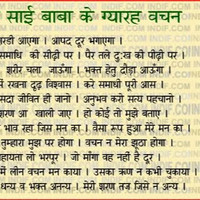 साई बाबा के ग्यारह वचन
रडी आएगा । आपद दूर भगाएगा ।
समाधि की सीढ़ी पर । पैर तले दुःख की पीढ़ी पर ।
शरीर चला जाऊंगा । भक्त हेतु दौड़ा आऊंगा ।
में रखना दृढ़ विश्वास । करे समाधी पूरी आस ।
सदा जीवित ही जानो । अनुभव करो सत्य पहचानो ।
शरण आ खाली जाए । हो कोई तो मुझे बताए ।
भाव रहा जिस मन का । वैसा रूप हुआ मेरे मन का ।
तुम्हारा मुझ पर होगा । वचन न मेरा झूठा होगा ।
हायता लो भरपूर । जो मांगा वह नहीं है दूर ।
में लीन वचन मन काया । उसका ऋण न कभी चुकाया ।
धन्य व भक्त अनन्य । मेरी शरण तज जिसे न अन्य ।